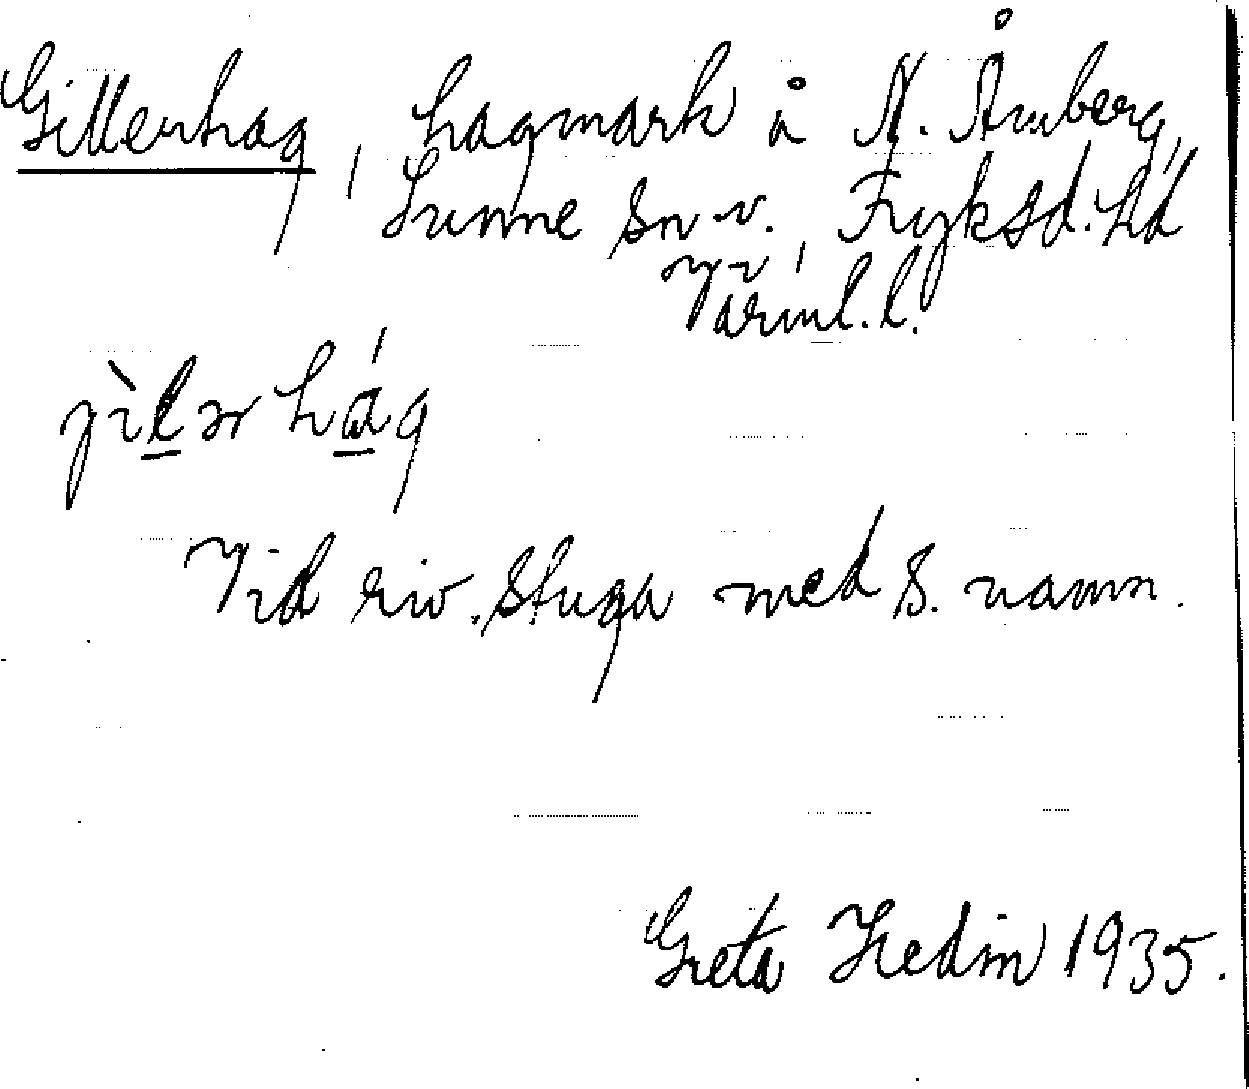 Gillerhag, hagmark å N. Åmberg,
Sunne sn v., Fryksd. hd
Värml. l.
jìlər hág
Vid riv. stuga med s. namn.
Greta Hedin 1935.